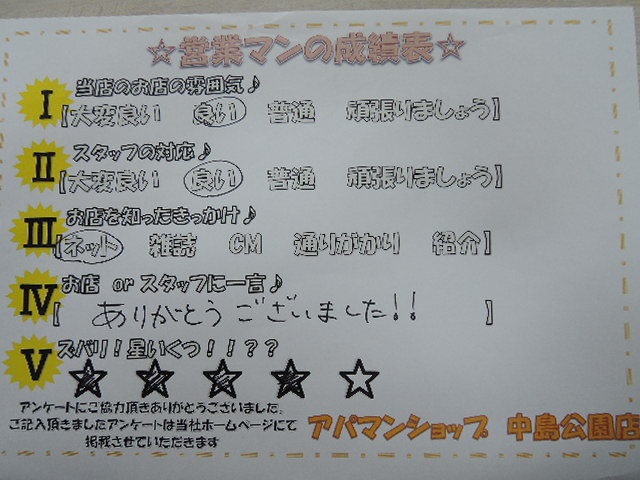 ☆営業マンの成績表☆
I 当店のお店の雰囲気♪
【大変良い 良い 普通 頑張りましょう】
II スタッフの対応♪
【大変良い 良い 普通 頑張りましょう】
III お店を知ったきっかけ♪
【ネット 雑誌 CM 通りがかり 紹介】
IV お店 or スタッフに一言♪
【 ありがとうございました!! 】
V ズバリ!星いくつ!!??
★★★★☆
アンケートにご協力頂きありがとうございました。
ご記入頂きましたアンケートは当社ホームページにて
掲載させていただきます
アパマンショップ 中島公園店